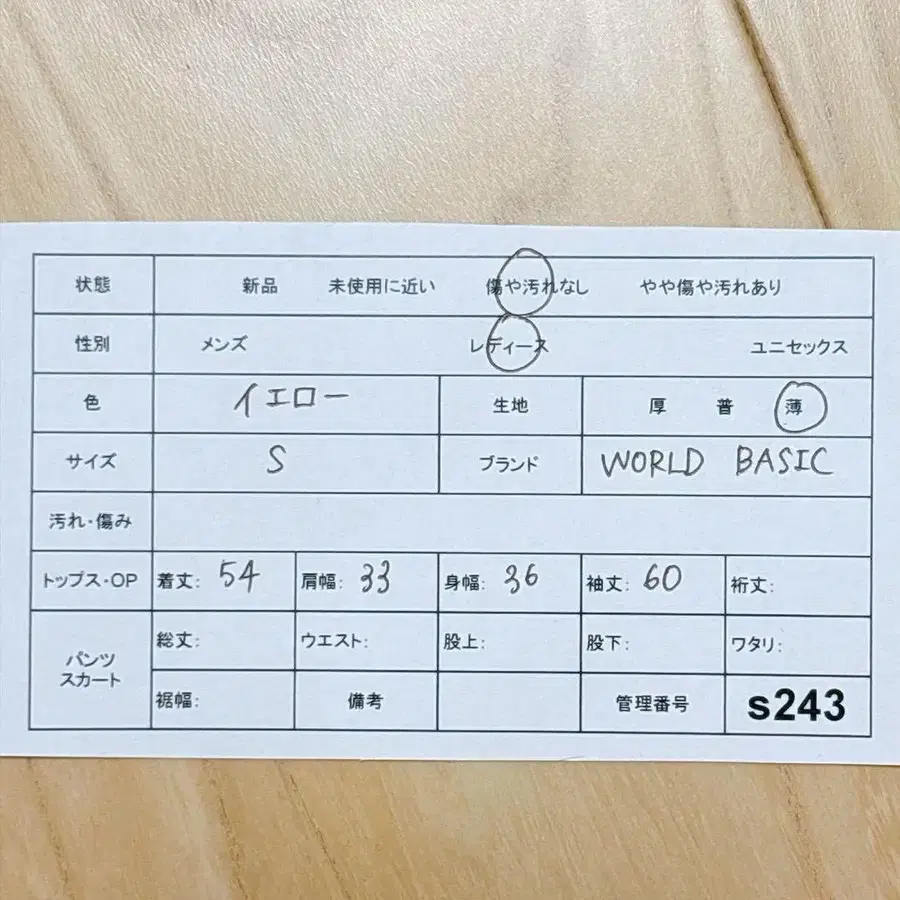 状態 新品 未使用に近い 傷や汚れなし やや傷や汚れあり
性別 メンズ レディース ユニセックス
色 イエロー 生地 厚 普 薄
サイズ S ブランド WORLD BASIC
汚れ・傷み
トップス・OP 着丈: 54 肩幅: 33 身幅: 36 袖丈: 60 裄丈:
パンツ スカート 総丈: ウエスト: 股上: 股下: ワタリ:
裾幅: 備考 管理番号 s243